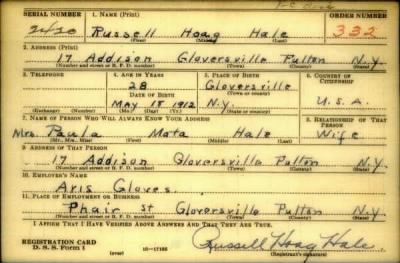 SERIAL NUMBER 1. NAME (Print) ORDER NUMBER
Russell Hoag Hale 332
(First) (Middle) (Last)
2. ADDRESS (Print)
17 Addison Gloversville Fulton N.Y.
(Number and street or R. F. D. number) (Town) (County) (State)
3. TELEPHONE 4. AGE IN YEARS 5. PLACE OF BIRTH 6. COUNTRY OF CITIZENSHIP
28 Gloversville
DATE OF BIRTH (Town or county)
May 18 1912 N.Y. U.S.A.
(Exchange) (Number) (Mo.) (Day) (Yr.) (State or country)
7. NAME OF PERSON WHO WILL ALWAYS KNOW YOUR ADDRESS 8. RELATIONSHIP OF THAT PERSON
Mrs. Paula Mota Hale Wife
(Mr., Mrs., Miss) (First) (Middle) (Last)
9. ADDRESS OF THAT PERSON
17 Addison Gloversville Fulton N.Y.
(Number and street or R. F. D. number) (Town) (County) (State)
10. EMPLOYER'S NAME
Aris Gloves.
11. PLACE OF EMPLOYMENT OR BUSINESS
Phair St Gloversville Fulton N.Y.
(Number and street or R. F. D. number) (Town) (County) (State)
I AFFIRM THAT I HAVE VERIFIED ABOVE ANSWERS AND THAT THEY ARE TRUE.
REGISTRATION CARD
D. S. S. Form 1 (over) Russell Hoag Hale
(Registrant's signature)